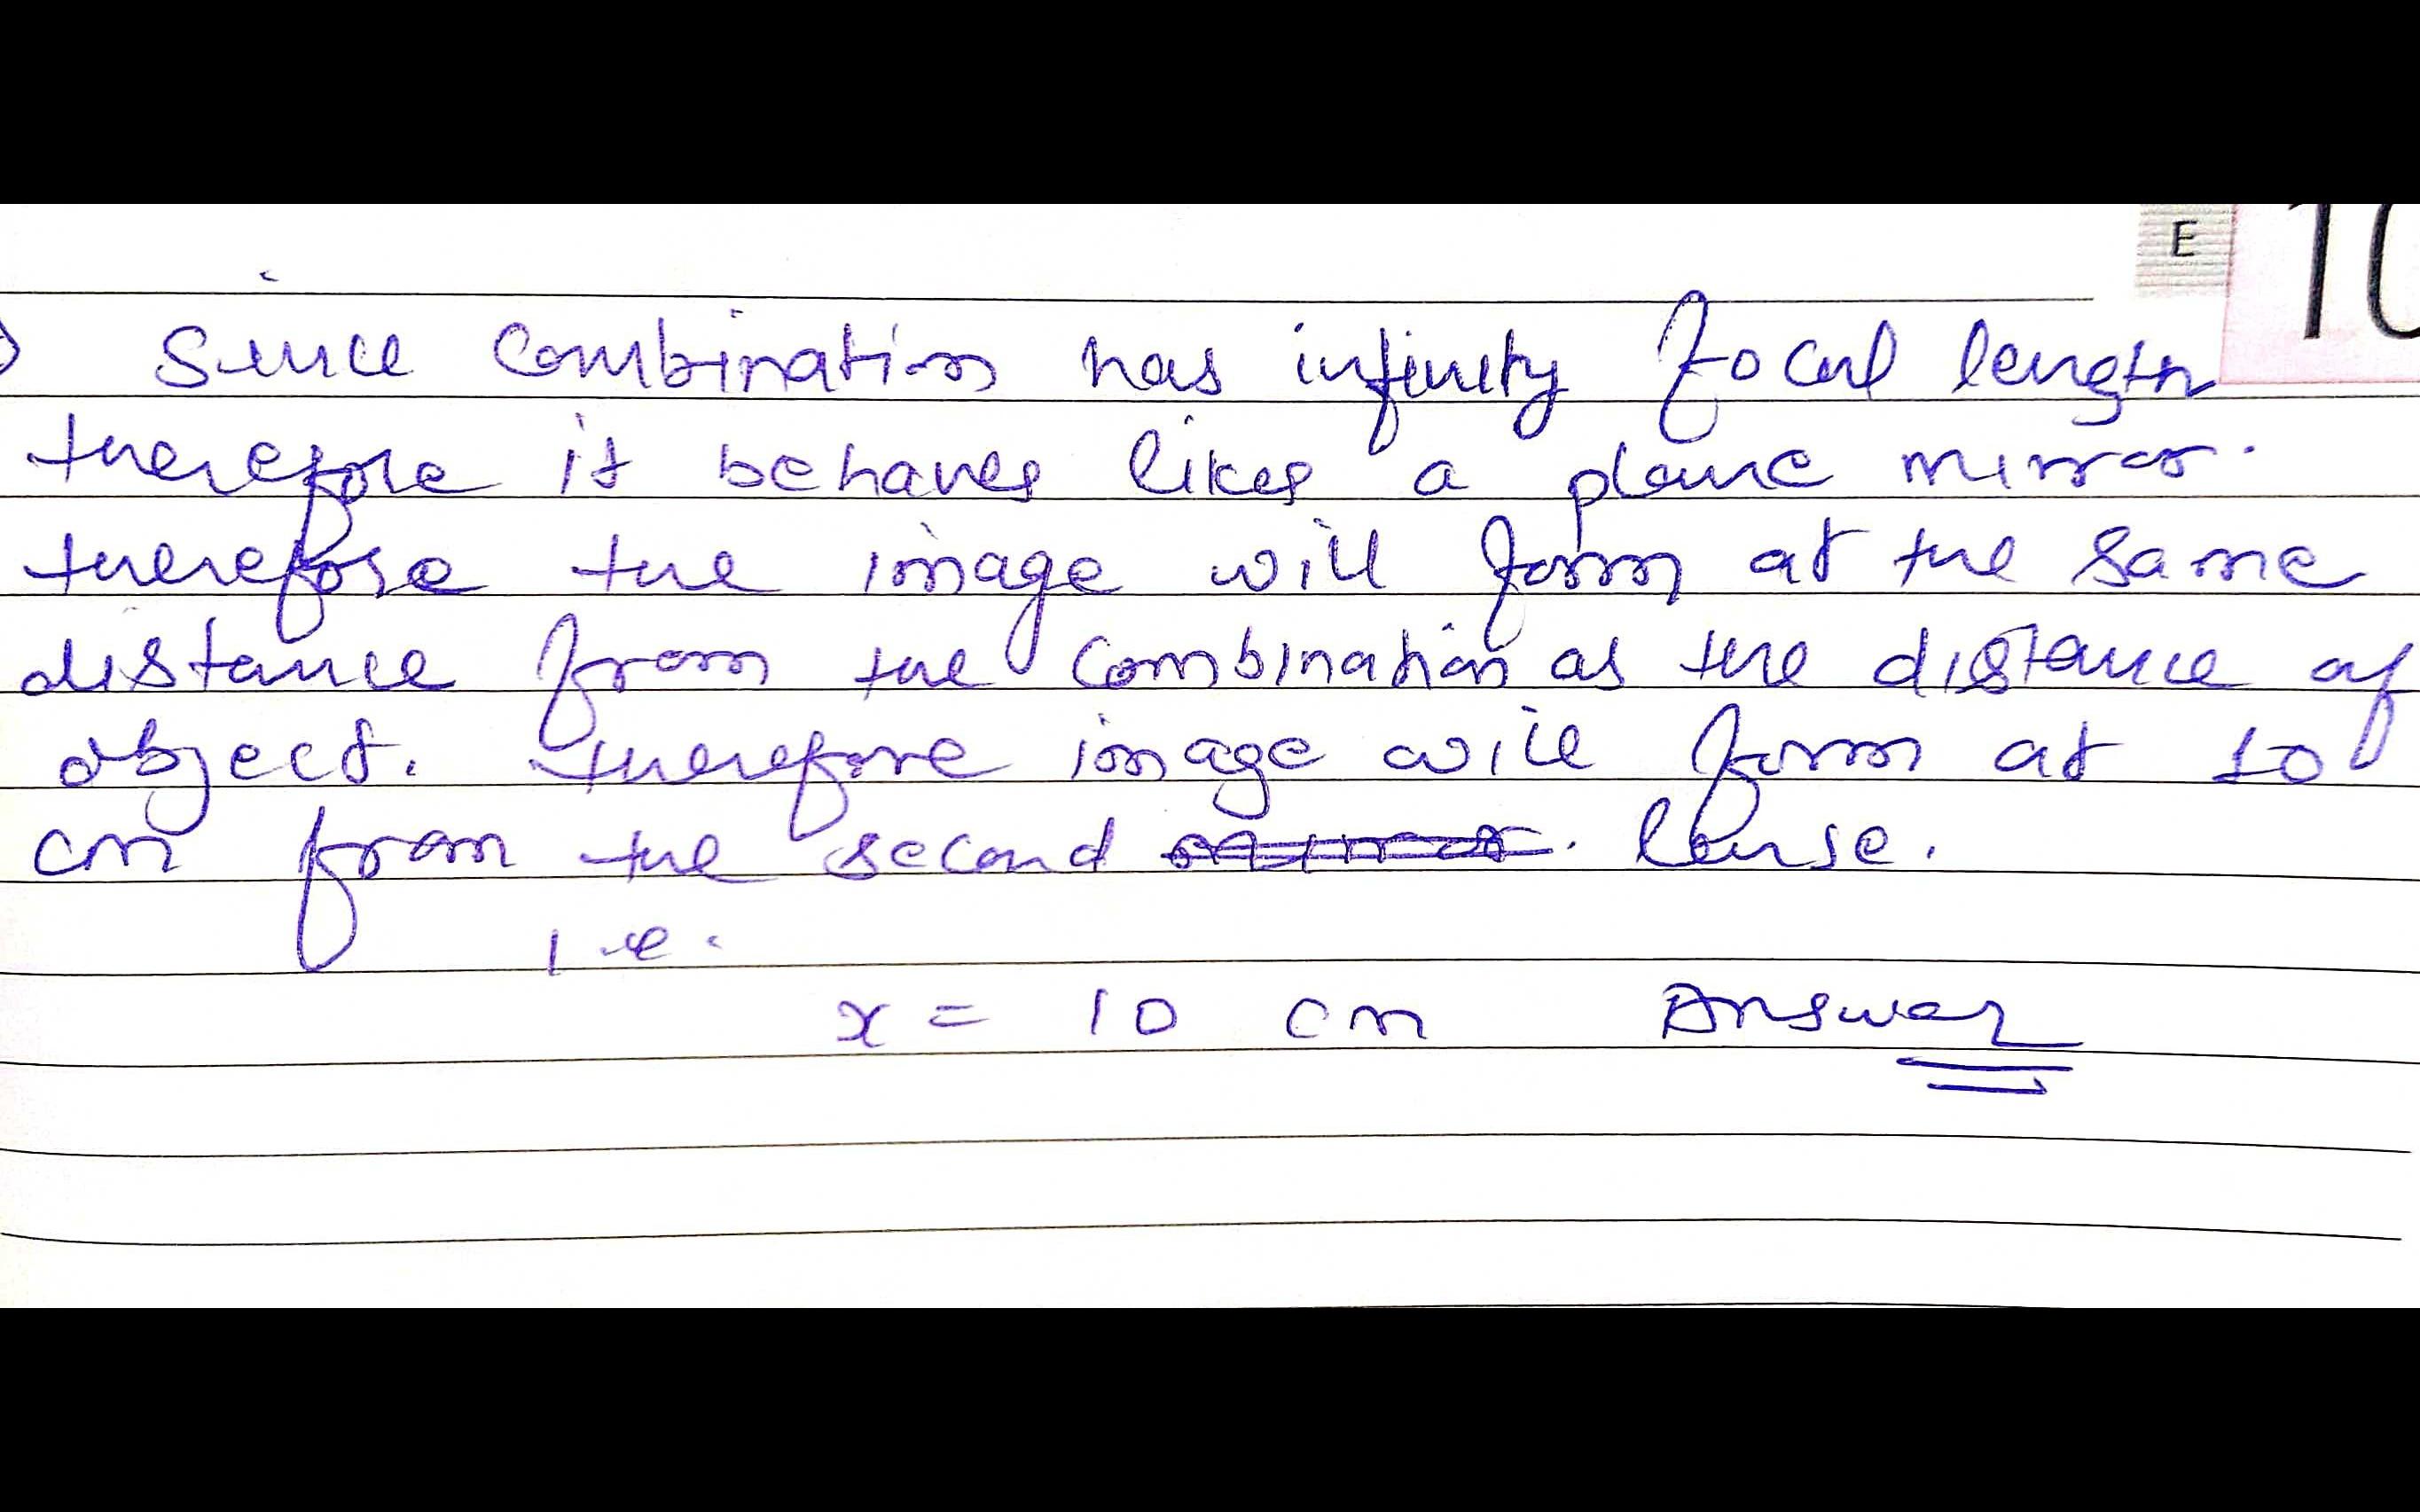 E 10
Since combination has infinity focal length
therefore it behaves likes a plane mirror.
therefore the image will form at the same
distance from the combination as the distance of
object. therefore image will form at 10
cm from the second mirror. lense.
i.e.
x = 10 cm Answer